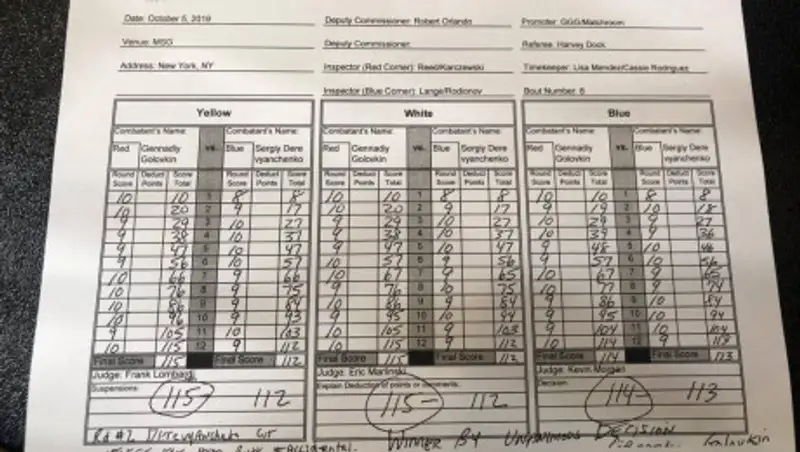 Date: October 5, 2019 Deputy Commissioner: Robert Orlando Promoter: GGG/Matchroom
Venue: MSG Deputy Commissioner: Referee: Harvey Dock
Address: New York, NY Inspector (Red Corner): Reed/Karczewski Timekeeper: Lisa Mendez/Cassie Rodriguez
Inspector (Blue Corner): Lange/Rodionov Bout Number: 6
Yellow White Blue
Combatant's Name: vs. Combatant's Name: Combatant's Name: vs. Combatant's Name: Combatant's Name: vs. Combatant's Name:
Red Gennadiy Golovkin Blue Sergiy Dere vyanchenko Red Gennadiy Golovkin Blue Sergiy Dere vyanchenko Red Gennadiy Golovkin Blue Sergiy Dere vyanchenko
Round Score Deduct Points Score Total Round Score Deduct Points Score Total Round Score Deduct Points Score Total Round Score Deduct Points Score Total Round Score Deduct Points Score Total Round Score Deduct Points Score Total
10 10 1 8 8 10 10 1 8 8 10 10 1 8 8
10 20 2 9 17 10 20 2 9 17 9 19 2 10 18
9 29 3 10 27 9 29 3 10 27 10 29 3 9 27
9 38 4 10 37 9 38 4 10 37 10 39 4 9 36
9 47 5 10 47 9 47 5 10 47 9 48 5 10 46
9 6 10 57 10 57 6 9 56 9 57 6 10 56
10 66 7 9 66 10 67 7 9 65 10 67 7 9 65
10 76 8 9 75 9 76 8 10 75 10 77 8 9 74
10 86 9 9 84 10 86 9 9 84 9 86 9 10 84
10 96 10 9 93 9 95 10 10 94 9 95 10 10 94
9 105 11 10 103 10 105 11 9 103 9 104 11 10 104
10 115 12 9 112 10 115 12 9 112 10 114 12 9 113
Final Score 115 Final Score 112 Final Score 115 Final Score 112 Final Score 114 Final Score 113
Judge: Frank Lombardi Judge: Eric Marlinski Judge: Kevin Morgan
Suspensions: Explain Deduction of points or comments: Decision:
115- 112 115- 112 114- 113
Rd #2 Derevyanchenko cut WINNER BY UNANIMOUS DECISION
Accidental. Golovkin